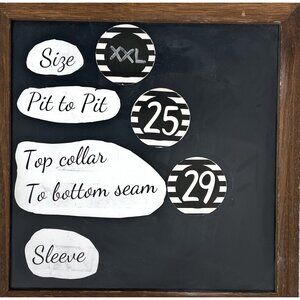 Size XXL
Pit to Pit 25
Top collar
To bottom seam 29
Sleeve